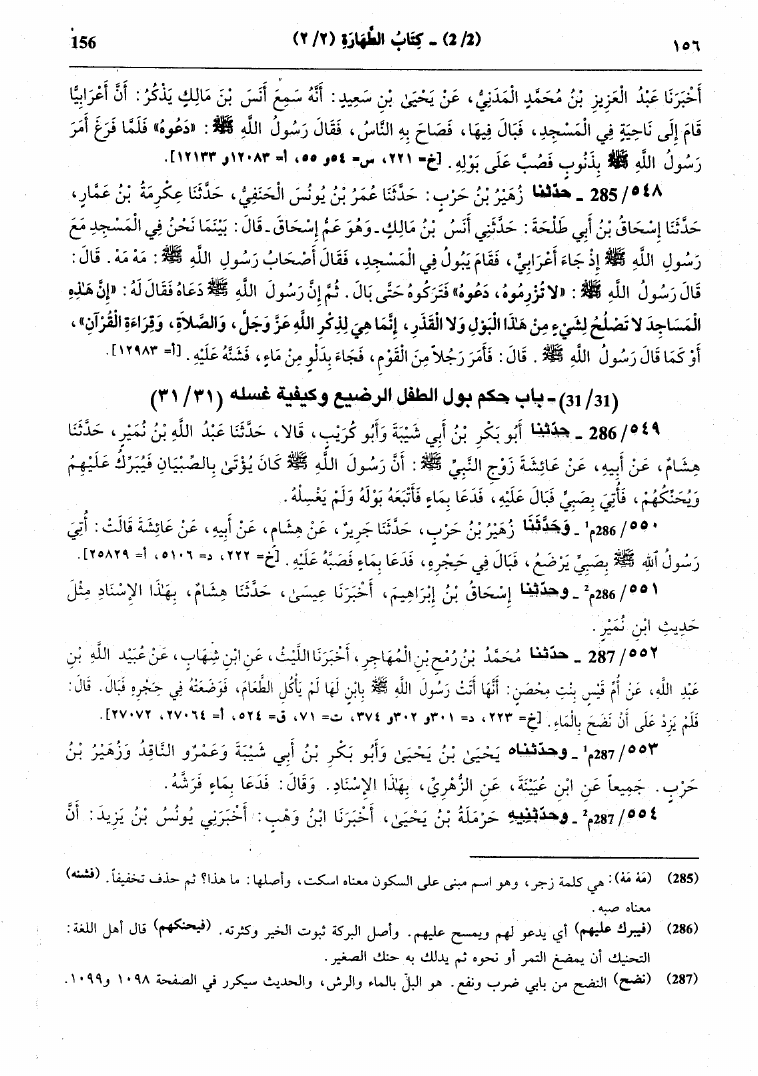 ١٥٦ (2/2) - كِتَابُ الطَّهَارَةِ (٢/٢) 156
أَخْبَرَنَا عَبْدُ الْعَزِيزِ بْنُ مُحَمَّدٍ الْمَدَنِيُّ، عَنْ يَحْيَىٰ بْنِ سَعِيدٍ: أَنَّهُ سَمِعَ أَنَسَ بْنَ مَالِكٍ يَذْكُرُ: أَنَّ أَعْرَابِيًّا
قَامَ إِلَى نَاحِيَةٍ فِي الْمَسْجِدِ، فَبَالَ فِيهَا، فَصَاحَ بِهِ النَّاسُ، فَقَالَ رَسُولُ اللَّهِ ﷺ: «دَعُوهُ» فَلَمَّا فَرَغَ أَمَرَ
رَسُولُ اللَّهِ ﷺ بِذَنُوبٍ فَصُبَّ عَلَى بَوْلِهِ. [خ= ٢٢١، س= ٥٤و ٥٥، أ= ١٢٠٨٣و ١٢١٣٣].
٥٤٨/285 ـ حدّثنا زُهَيْرُ بْنُ حَرْبٍ: حَدَّثَنَا عُمَرُ بْنُ يُونُسَ الْحَنَفِيُّ، حَدَّثَنَا عِكْرِمَةُ بْنُ عَمَّارٍ،
حَدَّثَنَا إِسْحَاقُ بْنُ أَبِي طَلْحَةَ: حَدَّثَنِي أَنَسُ بْنُ مَالِكٍ ـ وَهُوَ عَمُّ إِسْحَاقَ ـ قَالَ: بَيْنَمَا نَحْنُ فِي الْمَسْجِدِ مَعَ
رَسُولِ اللَّهِ ﷺ إِذْ جَاءَ أَعْرَابِيٌّ، فَقَامَ يَبُولُ فِي الْمَسْجِدِ، فَقَالَ أَصْحَابُ رَسُولِ اللَّهِ ﷺ: مَهْ مَهْ. قَالَ:
قَالَ رَسُولُ اللَّهِ ﷺ: «لاَ تُزْرِمُوهُ، دَعُوهُ» فَتَرَكُوهُ حَتَّى بَالَ. ثُمَّ إِنَّ رَسُولَ اللَّهِ ﷺ دَعَاهُ فَقَالَ لَهُ: «إِنَّ هَذِهِ
الْمَسَاجِدَ لاَ تَصْلُحُ لِشَيْءٍ مِنْ هَٰذَا الْبَوْلِ وَلاَ الْقَذَرِ، إِنَّمَا هِيَ لِذِكْرِ اللَّهِ عَزَّ وَجَلَّ، وَالصَّلاَةِ، وَقِرَاءَةِ الْقُرْآنِ»،
أَوْ كَمَا قَالَ رَسُولُ اللَّهِ ﷺ. قَالَ: فَأَمَرَ رَجُلاً مِنَ الْقَوْمِ، فَجَاءَ بِدَلْوٍ مِنْ مَاءٍ، فَشَنَّهُ عَلَيْهِ. [أ= ١٢٩٨٣].
(31/31) ـ باب حكم بول الطفل الرضيع وكيفية غسله (٣١/٣١)
٥٤٩/286 ـ حدّثنا أَبُو بَكْرِ بْنُ أَبِي شَيْبَةَ وَأَبُو كُرَيْبٍ، قَالاَ، حَدَّثَنَا عَبْدُ اللَّهِ بْنُ نُمَيْرٍ، حَدَّثَنَا
هِشَامٌ، عَنْ أَبِيهِ، عَنْ عَائِشَةَ زَوْجِ النَّبِيِّ ﷺ: أَنَّ رَسُولَ اللَّهِ ﷺ كَانَ يُؤْتَىٰ بِالصِّبْيَانِ فَيُبَرِّكُ عَلَيْهِمْ
وَيُحَنِّكُهُمْ، فَأُتِيَ بِصَبِيٍّ فَبَالَ عَلَيْهِ، فَدَعَا بِمَاءٍ فَأَتْبَعَهُ بَوْلَهُ وَلَمْ يَغْسِلْهُ.
٥٥٠/286م¹ ـ وَحَدَّثَنَا زُهَيْرُ بْنُ حَرْبٍ، حَدَّثَنَا جَرِيرٌ، عَنْ هِشَامٍ، عَنْ أَبِيهِ، عَنْ عَائِشَةَ قَالَتْ: أُتِيَ
رَسُولُ اللهِ ﷺ بِصَبِيٍّ يَرْضَعُ، فَبَالَ فِي حَجْرِهِ، فَدَعَا بِمَاءٍ فَصَبَّهُ عَلَيْهِ. [خ= ٢٢٢، د= ٥١٠٦، أ= ٢٥٨٢٩].
٥٥١/286م² ـ وحدّثنا إِسْحَاقُ بْنُ إِبْرَاهِيمَ، أَخْبَرَنَا عِيسَىٰ، حَدَّثَنَا هِشَامٌ، بِهَٰذَا الإِسْنَادِ مِثْلَ
حَدِيثِ ابْنِ نُمَيْرٍ.
٥٥٢/287 ـ حدّثنا مُحَمَّدُ بْنُ رُمْحِ بْنِ الْمُهَاجِرِ، أَخْبَرَنَا اللَّيْثُ، عَنِ ابْنِ شِهَابٍ، عَنْ عُبَيْدِ اللَّهِ بْنِ
عَبْدِ اللَّهِ، عَنْ أُمِّ قَيْسٍ بِنْتِ مِحْصَنٍ: أَنَّهَا أَتَتْ رَسُولَ اللَّهِ ﷺ بِابْنٍ لَهَا لَمْ يَأْكُلِ الطَّعَامَ، فَوَضَعَتْهُ فِي حَجْرِهِ فَبَالَ. قَالَ:
فَلَمْ يَزِدْ عَلَى أَنْ نَضَحَ بِالْمَاءِ. [خ= ٢٢٣، د= ٣٠١و ٣٠٢و ٣٧٤، ت= ٧١، ق= ٥٢٤، أ= ٢٧٠٦٤، ٢٧٠٧٢].
٥٥٣/287م¹ ـ وحدّثناه يَحْيَىٰ بْنُ يَحْيَىٰ وَأَبُو بَكْرِ بْنُ أَبِي شَيْبَةَ وَعَمْرٌو النَّاقِدُ وَزُهَيْرُ بْنُ
حَرْبٍ. جَمِيعاً عَنِ ابْنِ عُيَيْنَةَ، عَنِ الزُّهْرِيِّ، بِهَٰذَا الإِسْنَادِ. وَقَالَ: فَدَعَا بِمَاءٍ فَرَشَّهُ.
٥٥٤/287م² ـ وحدّثنيه حَرْمَلَةُ بْنُ يَحْيَىٰ، أَخْبَرَنَا ابْنُ وَهْبٍ: أَخْبَرَنِي يُونُسُ بْنُ يَزِيدَ: أَنَّ
(285) (مَهْ مَهْ): هي كلمة زجر، وهو اسم مبنى على السكون معناه اسكت، وأصلها: ما هذا؟ ثم حذف تخفيفاً. (فشنه)
معناه صبه.
(286) (فيبرك عليهم) أي يدعو لهم ويمسح عليهم. وأصل البركة ثبوت الخير وكثرته. (فيحنكهم) قال أهل اللغة:
التحنيك أن يمضغ التمر أو نحوه ثم يدلك به حنك الصغير.
(287) (نضح) النضح من بابي ضرب ونفع. هو البلّ بالماء والرش، والحديث سيكرر في الصفحة ١٠٩٨ و١٠٩٩.